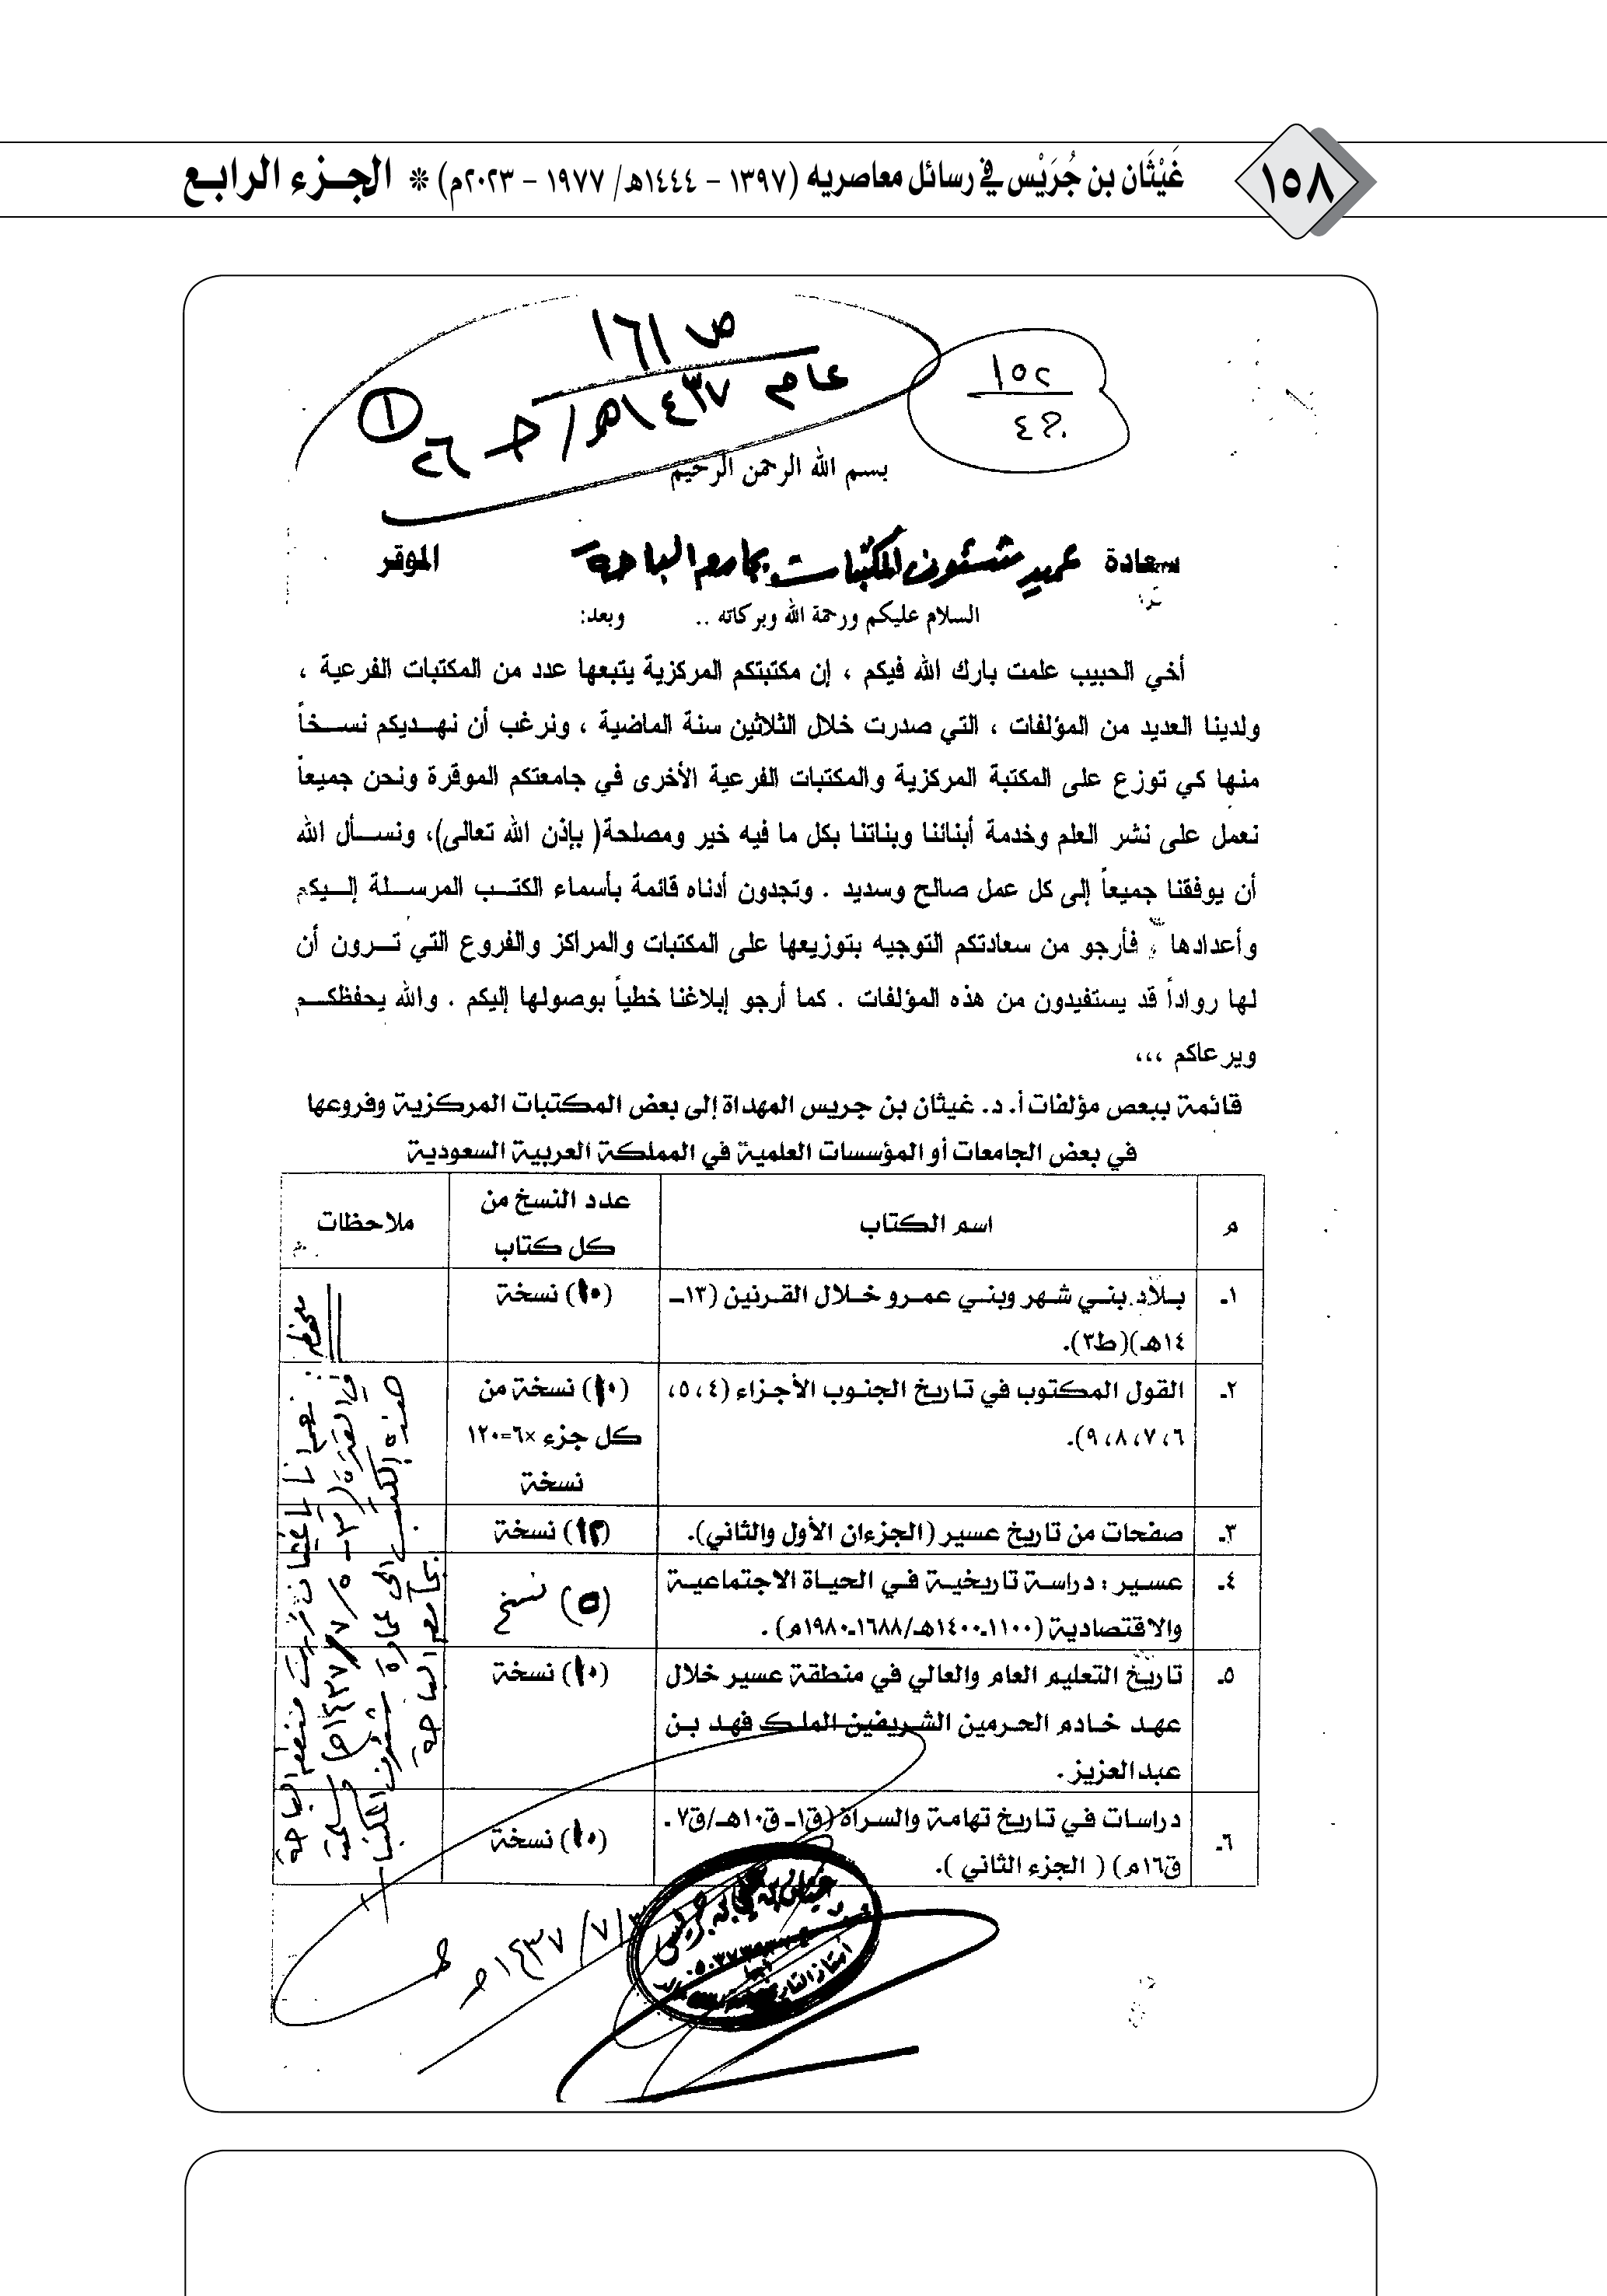 ١٥٨
غَيْثَان بن جُرَيْس في رسائل معاصريه (١٣٩٧ - ١٤٤٤هـ/ ١٩٧٧ - ٢٠٢٣م) * الجـزء الرابـع
ص ١٦١
عام ١٤٣٧هـ/ جـ ٢٦
١
١٥٢
بسم الله الرحمن الرحيم
سعادة عميد شئون المكتبات بجامعة الباحة الموقر
السلام عليكم ورحمة الله وبركاته .. وبعد:
أخي الحبيب علمت بارك الله فيكم ، إن مكتبتكم المركزية يتبعها عدد من المكتبات الفرعية ،
ولدينا العديد من المؤلفات ، التي صدرت خلال الثلاثين سنة الماضية ، ونرغب أن نهـديكم نسـخاً
منها كي توزع على المكتبة المركزية والمكتبات الفرعية الأخرى في جامعتكم الموقرة ونحن جميعاً
نعمل على نشر العلم وخدمة أبنائنا وبناتنا بكل ما فيه خير ومصلحة( بإذن الله تعالى)، ونسـأل الله
أن يوفقنا جميعاً إلى كل عمل صالح وسديد . وتجدون أدناه قائمة بأسماء الكتـب المرسـلة إلـيكم
وأعدادها ، فأرجو من سعادتكم التوجيه بتوزيعها على المكتبات والمراكز والفروع التي تـرون أن
لها رواداً قد يستفيدون من هذه المؤلفات . كما أرجو إبلاغنا خطياً بوصولها إليكم . والله يحفظكـم
ويرعاكم ،،،
قائمة ببعص مؤلفات أ. د. غيثان بن جريس المهداة إلى بعض المكتبات المركزية وفروعها
في بعض الجامعات أو المؤسسات العلمية في المملكة العربية السعودية
م اسم الكتاب عدد النسخ من كل كتاب ملاحظات
١ـ بـلاد بنـي شـهر وبنـي عمـرو خـلال القـرنين (١٣ـ (١٠) نسخة
١٤هـ)(ط٣).
٢ـ القول المكتوب في تاريخ الجنوب الأجزاء (٤ ،٥، (١٠) نسخة من
٦ ،٧ ،٨ ،٩). كل جزء ×٦=١٢٠
نسخة
٣ـ صفحات من تاريخ عسير (الجزءان الأول والثاني). (١٢) نسخة
٤ـ عسـير : دراسـة تاريخيـة فـي الحيـاة الاجتماعيـة (٥) نسخ
والاقتصادية (١١٠٠ـ١٤٠٠هـ/١٦٨٨ـ١٩٨٠م) .
٥ـ تاريخ التعليم العام والعالي في منطقة عسير خلال (١٠) نسخة
عهـد خـادم الحـرمين الشـريفين الملـك فهـد بـن
عبدالعزيز .
٦ـ دراسات في تاريخ تهامة والسراة (ق١ـ ق١٠هـ/ق٧ ـ (١٠) نسخة
ق١٦م) ( الجزء الثاني ).
هذه الكتب إلى عمادة شئون المكتبات
بجامعة الباحة
١٤٣٧/٧/٣هـ